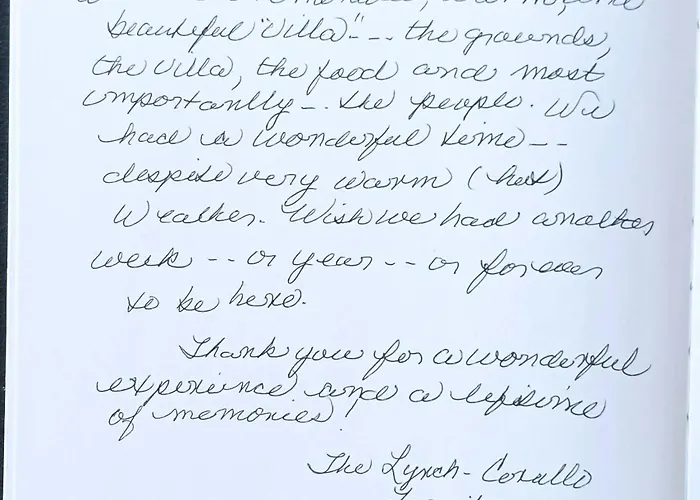 beautiful "Villa" -- the grounds,
the Villa, the food and most
importantly -- the people. We
had a wonderful time --
despite very warm (hot)
Weather. Wish we had another
week -- or year -- or forever
to be here.
Thank you for a wonderful
experience and a lifetime
of memories!
The Lynch-Corallo